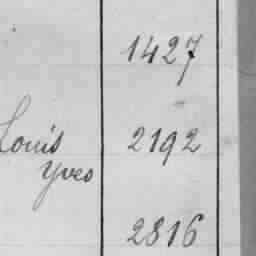 1427
Louis 2192
Yves
2816